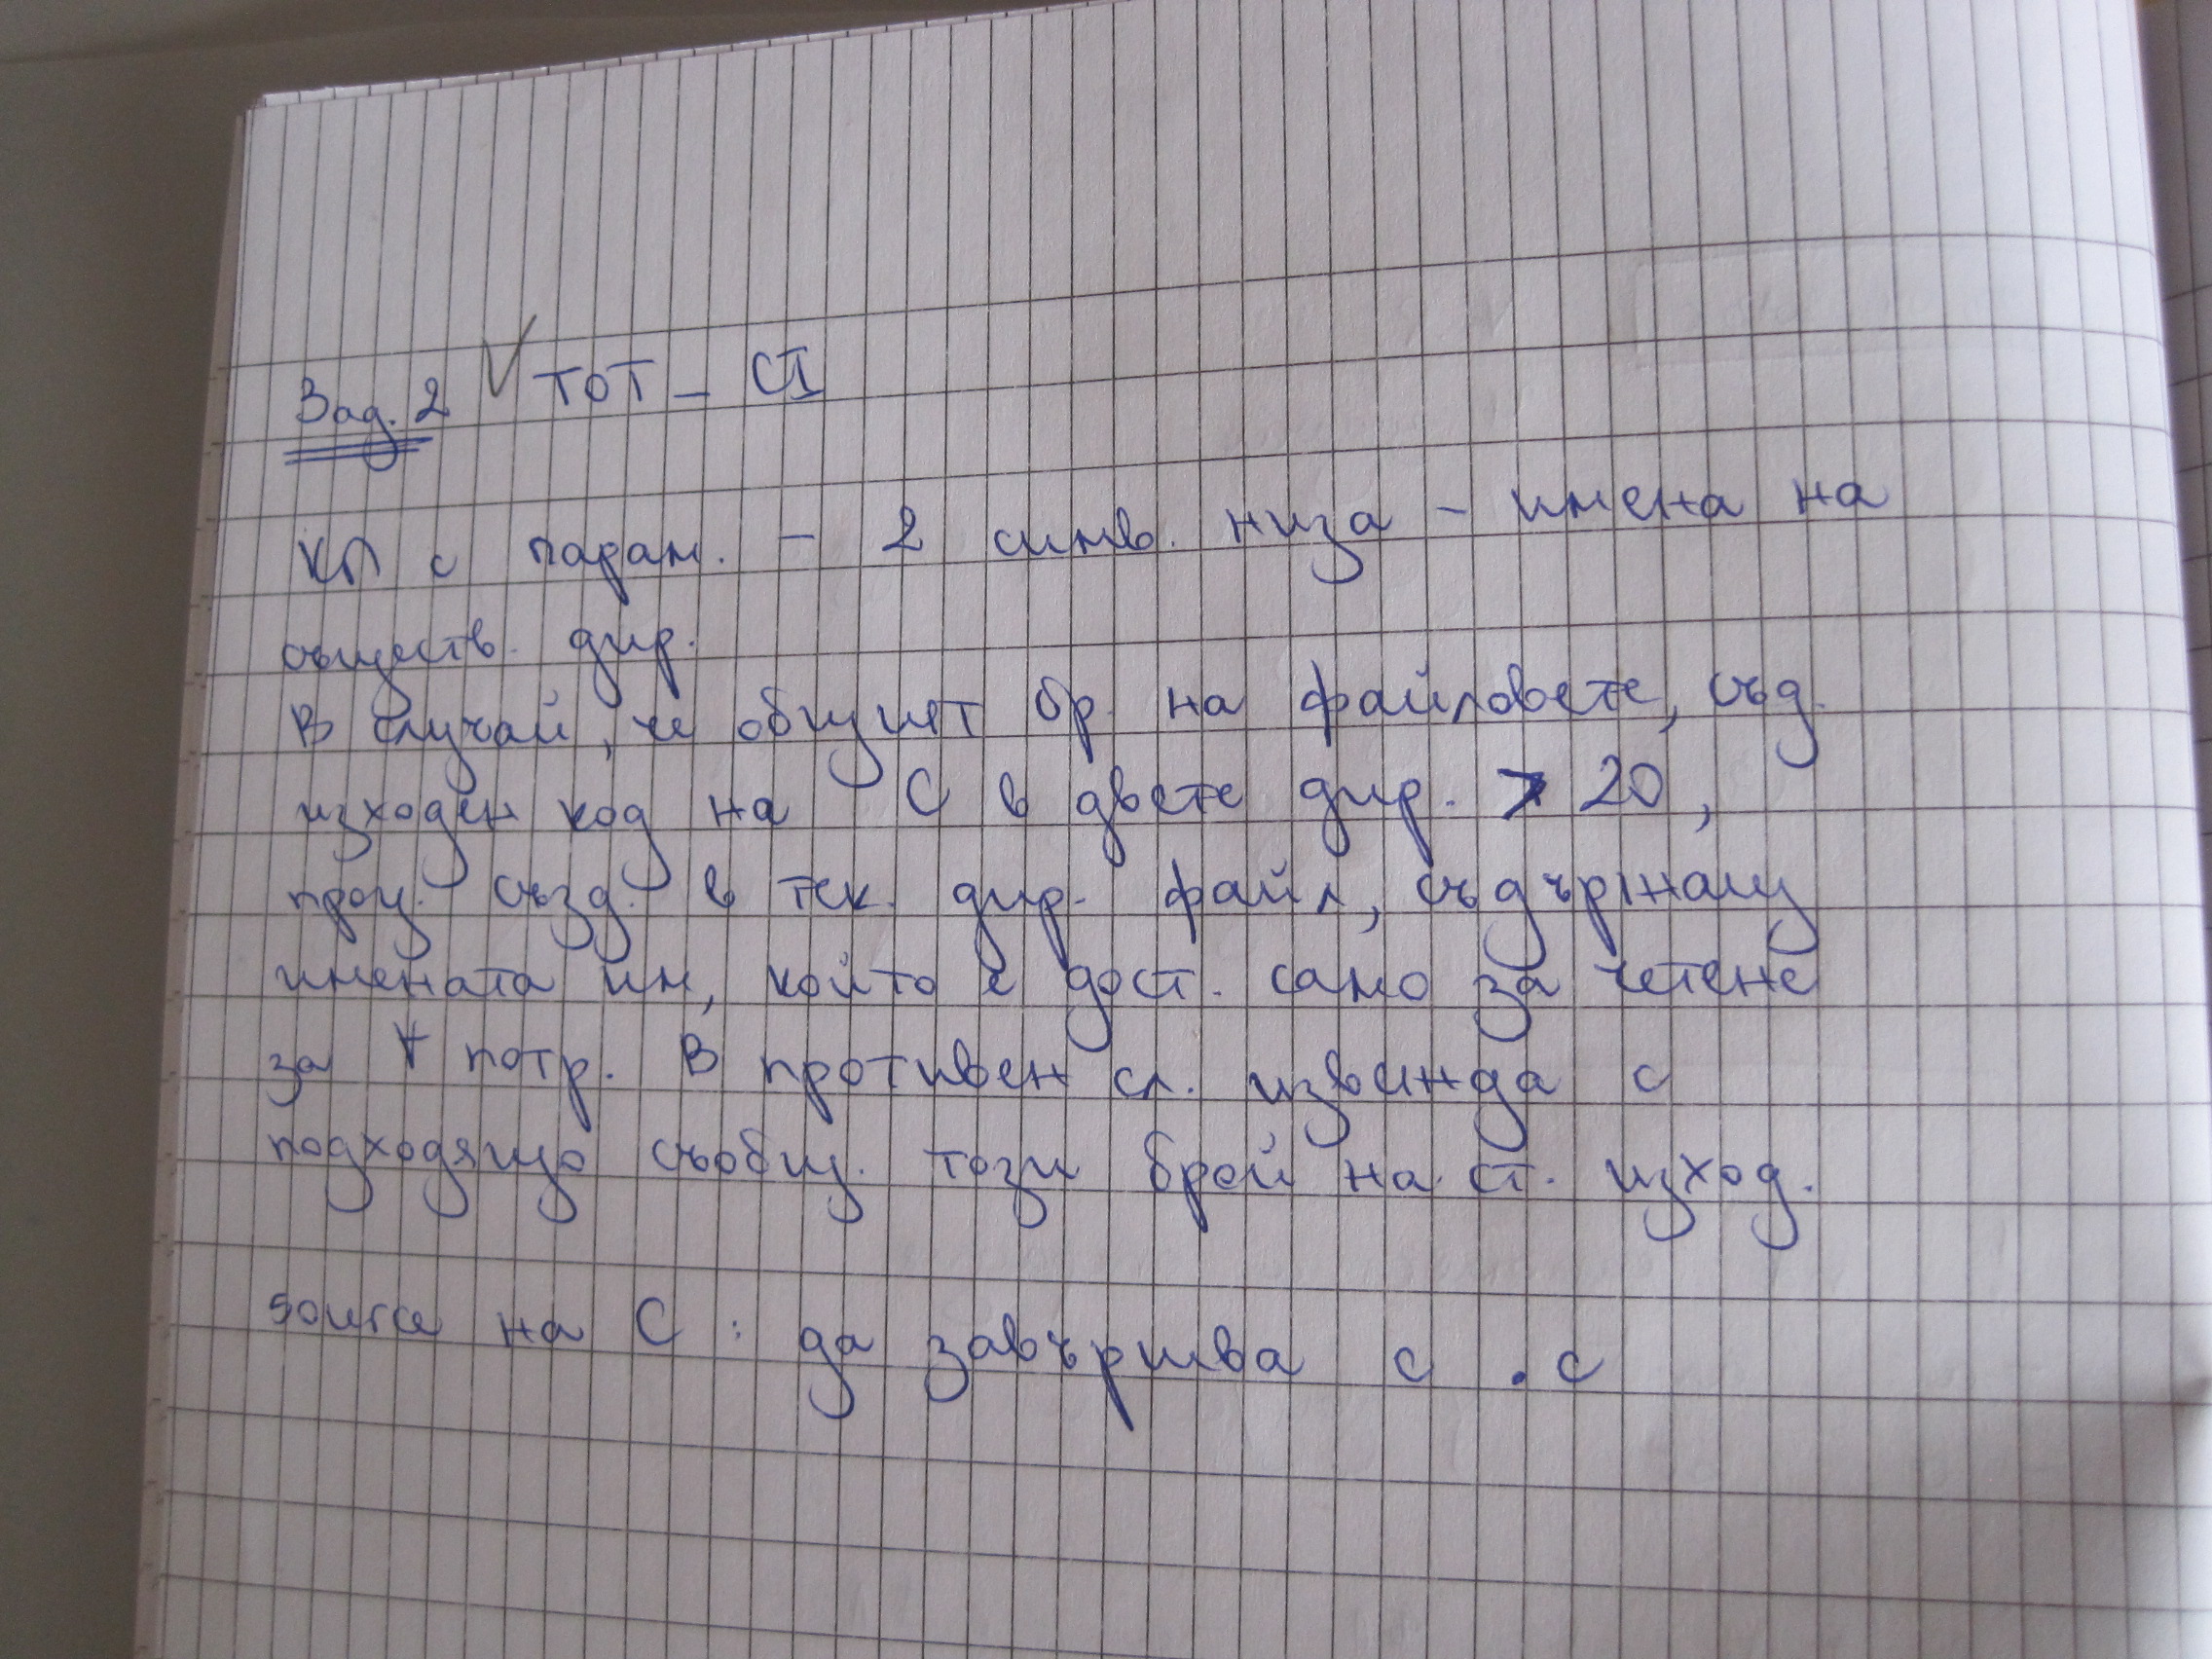 Зад. 2 √ ТОТ - CI
КП с парам. - 2 симв. низа - имена на
съществ. дир.
В случай, че общият бр. на файловете, съд.
изходен код на C в двете дир. > 20,
проц. създ. в тек. дир. файл, съдържащ
имената им, който е дост. само за четене
за ∀ потр. В противен сл. извежда с
подходящо съобщ. този брой на ст. изход.
source на C : да завършва с .c